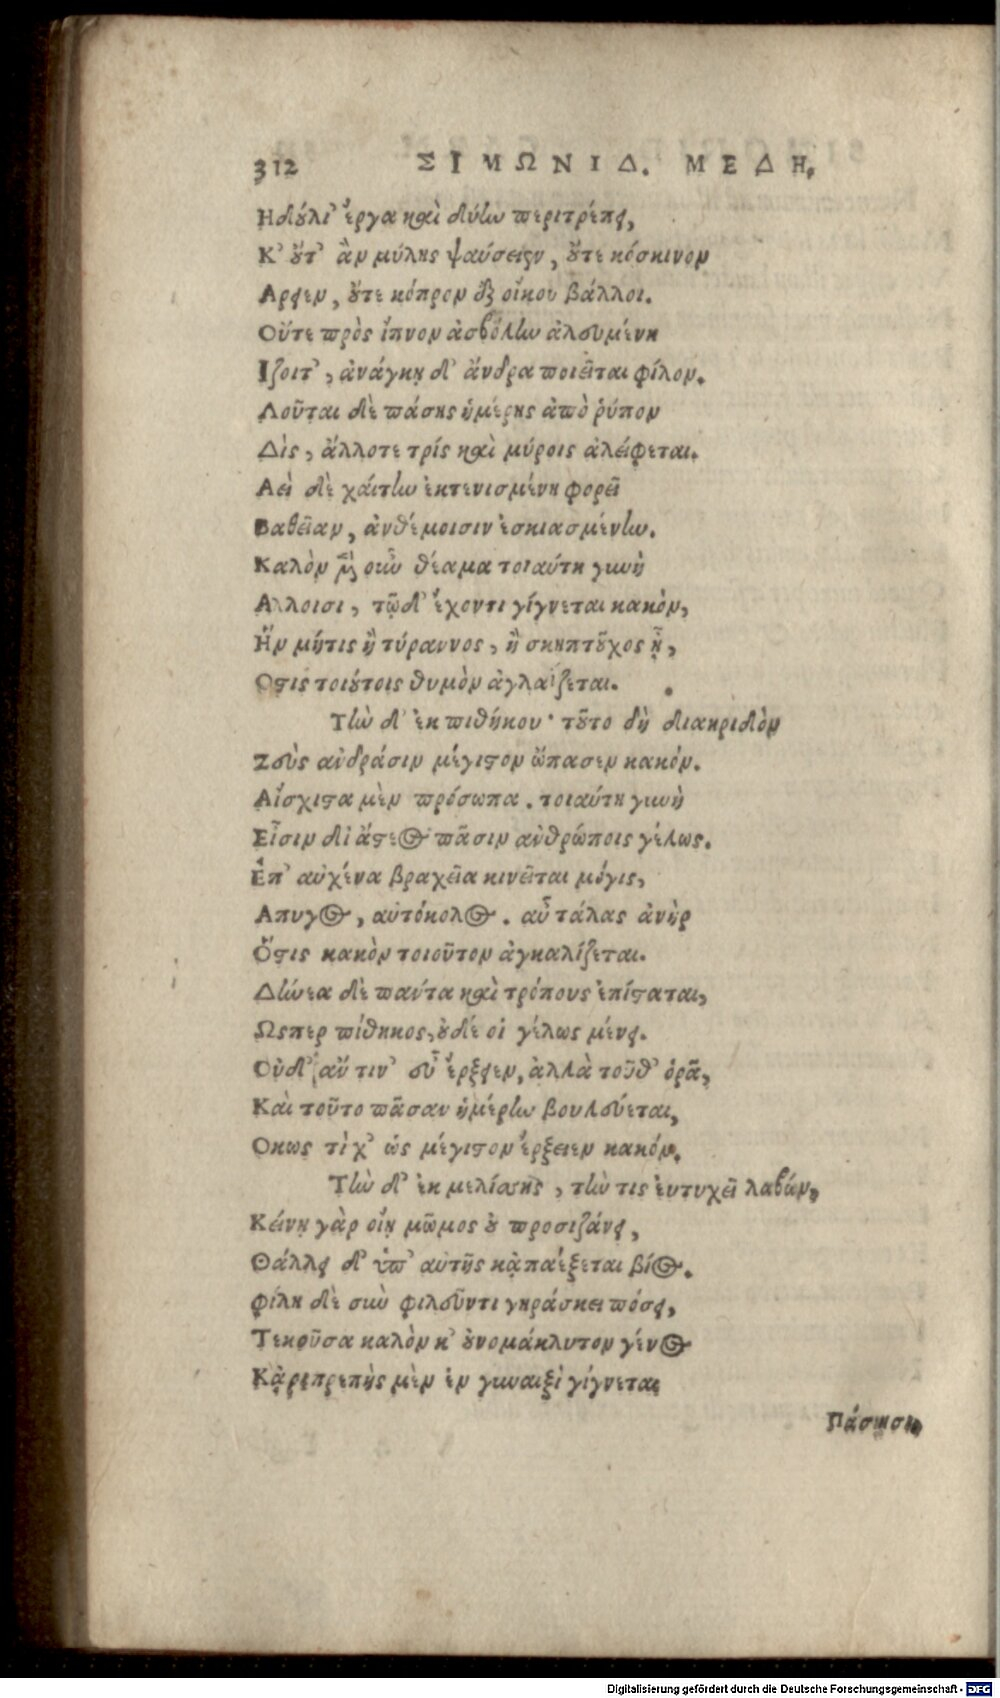 312 ΣΙΜΩΝΙΔ. ΜΕΔΗ.
Ηδούλι' ἔργα καὶ δύην περιτρέπει,
Κ' οὔτ' ἂν μύλης ψαύσειεν, οὔτε κόσκινον
Αρειεν, οὔτε κόπρον ἐξ οἴκου βάλλοι.
Οὔτε πρὸς ἵπνον ἀσβόλην ἀλευμένη
Ιζοιτ', ἀνάγκη δ' ἄνδρα ποιεῖται φίλον.
Λοῦται δὲ πάσης ἡμέρης ἀπὸ ῥύπον
Δὶς, ἄλλοτε τρίς καὶ μύροις ἀλείφεται.
Αεὶ δὲ χαίτην ἐκτενισμένη φορεῖ
Βαθεῖαν, ἀνθέμοισιν ἐσκιασμένην.
Καλὸν μὲν οὖν θέαμα τοιαύτη γυνὴ
Αλλοισι, τῷ δ' ἔχοντι γίγνεται κακὸν,
Ἢν μήτις ἢ τύραννος, ἢ σκηπτοῦχος ᾖ,
Οστις τοιούτοις θυμὸν ἀγλαΐζεται.
Τὴν δ' ἐκ πιθήκου· τοῦτο δὴ διακριδὸν
Ζεὺς ανδράσιν μέγιστον ὤπασεν κακόν.
Αἴσχιστα μὲν πρόσωπα. τοιαύτη γυνὴ
Εἶσιν δι ἄστεος πᾶσιν ανθρώποις γέλως.
Ἐπ' αυχένα βραχεῖα κινεῖται μόγις,
Απυγος, αὐτόκολος. αὖ τάλας ἀνὴρ
Ὅστις κακὸν τοιοῦτον ἀγκαλίζεται.
Δήνεα δὲ παντα καὶ τρόπους ἐπίσταται,
Ωσπερ πίθηκος, οὐδέ οἱ γέλως μένει.
Οὐδ' αὔ τιν' εὖ ἔρξειεν, ἀλλὰ τοῦθ' ὁρᾶ,
Και τοῦτο πᾶσαν ἡμέρην βουλεύεται,
Οκως τὶ χ' ὡς μέγιστον ἔρξειεν κακόν.
Τὴν δ' ἐκ μελίσσης, τὴν τις ἐυτυχεῖ λαβών,
Κείνῃ γὰρ οἴῃ μῶμος οὐ προσιζάνει,
Θάλλει δ' ὑπ' αὐτῆς κᾀπαέξεται βίος.
Φίλη δὲ σὺν φιλεῦντι γηράσκει πόσει,
Τεκοῦσα καλὸν κ' οὐνομάκλυτον γένος
Κᾀριπρεπὴς μὲν ἐν γυναιξὶ γίγνεται
Πάσῃσι,